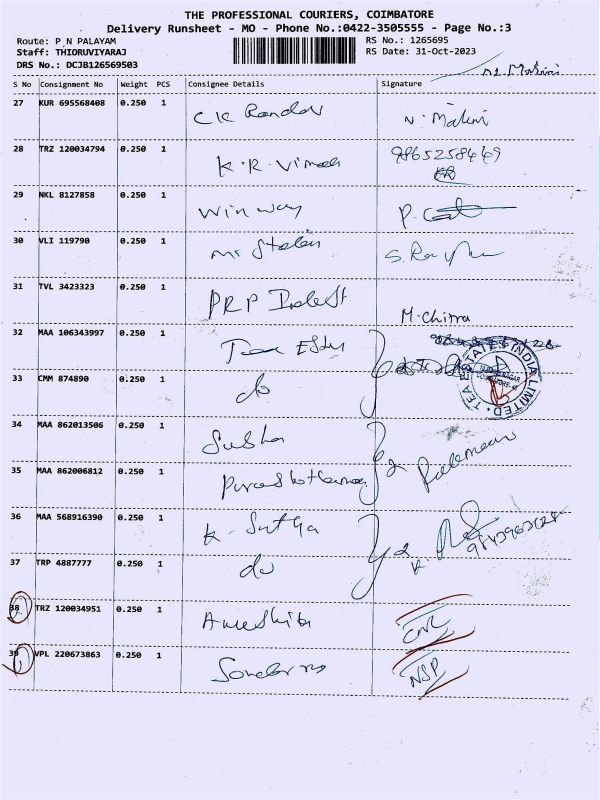 THE PROFESSIONAL COURIERS, COIMBATORE
Delivery Runsheet - MO - Phone No.:0422-3505555 - Page No.:3
Route: P N PALAYAM
RS No.: 1265695
Staff: THIORUVIYARAJ
RS Date: 31-Oct-2023
DRS No.: DCJB126569503
S No Consignment No Weight PCS Consignee Details Signature
27 KUR 695568408 0.250 1 N. Malini
28 TRZ 120034794 0.250 1 K.R. Vimal 9865258469
29 NKL 8127858 0.250 1 Winway
30 VLI 119790 0.250 1 Mr Stalin
31 TVL 3423323 0.250 1 PRP M.Chitra
32 MAA 106343997 0.250 1 Tea
TEA ESTATES INDIA LIMITED
33 CMM 874890 0.250 1 do
34 MAA 862013506 0.250 1 Susha
35 MAA 862006812 0.250 1
36 MAA 568916390 0.250 1 K. Sutha
37 TRP 4887777 0.250 1 do
38 TRZ 120034951 0.250 1
39 VPL 220673863 0.250 1 NSP